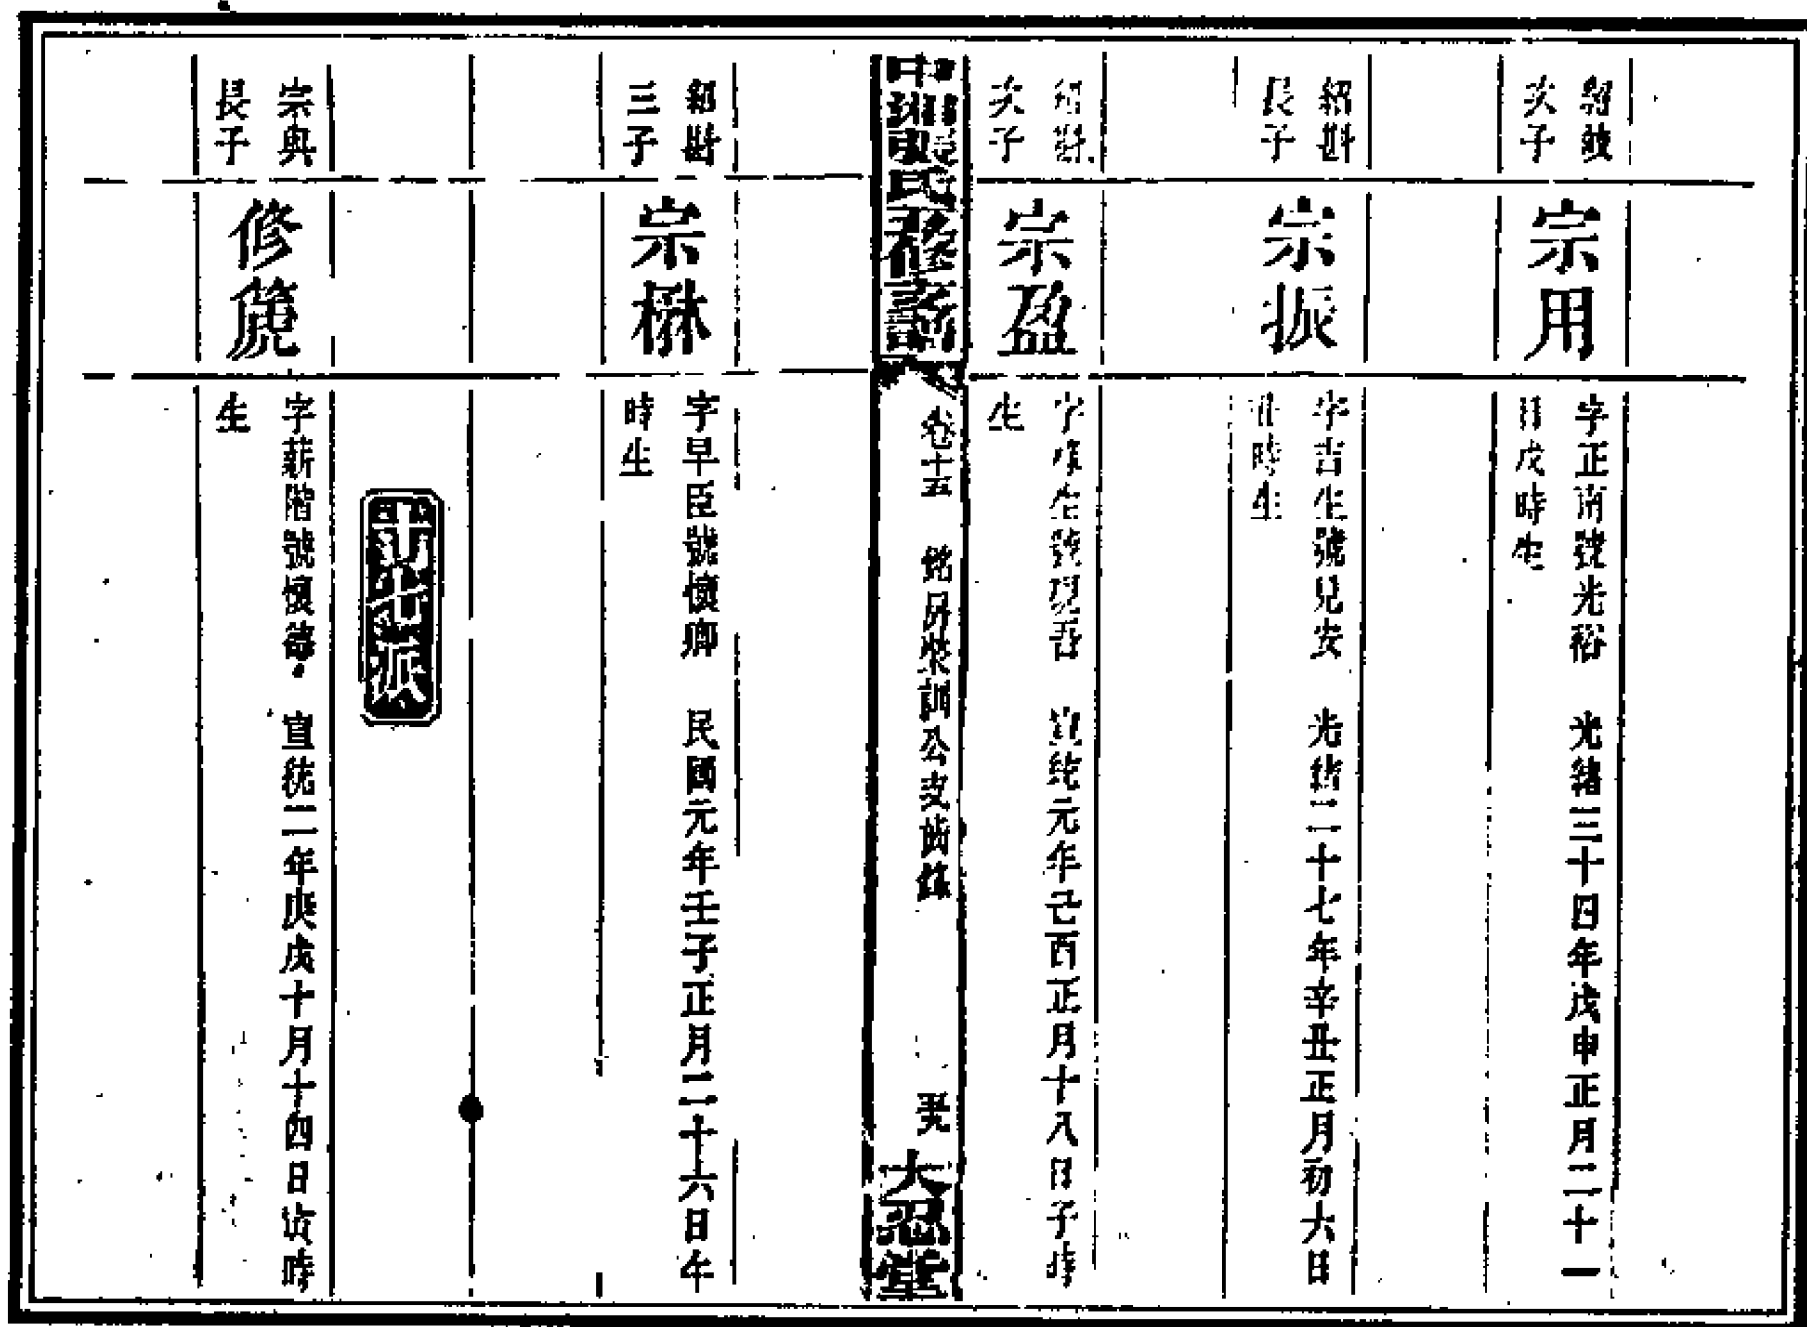 次子
宗用
字正南號光裕 光緒三十四年戊申正月二十一
日戌時生
紹斟
長子
宗振
字吉生號見安 光緒二十七年辛丑正月初六日
時生
紹斟
次子
宗盈
生號現吾 宣統元年己酉正月十八日子時
生
氏修譜
卷十五 銘房榮訓公支齒錄
大忍堂
紹斟
三子
宗楙
字早臣號懷卿 民國元年壬子正月二十六日午
時生
十七派
宗興
長子
修箎
字薪階號懷德 宣統二年庚戌十月十四日寅時
生